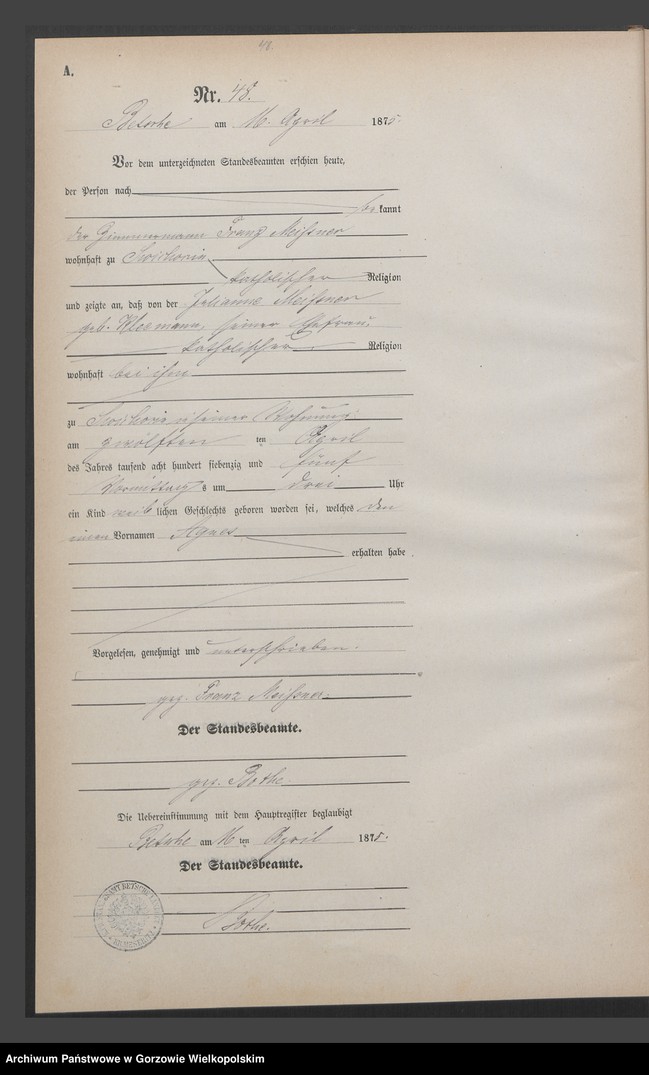 48.
A.
Nr. 48.
Betsche am 16. April 1875.
Vor dem unterzeichneten Standesbeamten erschien heute,
der Person nach
bekannt
der Zimmermann Franz Meißner
wohnhaft zu
katholischer Religion
und zeigte an, daß von der Julianne Meißner
geb. Kleemann, seiner Ehefrau,
katholischer Religion
wohnhaft bei ihm
zu in seiner Wohnung
am zwölften ten April
des Jahres tausend acht hundert siebenzig und fünf
Vormittags um drei Uhr
ein Kind weiblichen Geschlechts geboren worden sei, welches den
einen Vornamen Agnes
erhalten habe.
Vorgelesen, genehmigt und unterschrieben.
gez. Franz Meißner.
Der Standesbeamte.
gez. Bothe.
Die Uebereinstimmung mit dem Hauptregister beglaubigt
Betsche am 16 ten April 1875.
Der Standesbeamte.
Bothe.
Archiwum Państwowe w Gorzowie Wielkopolskim